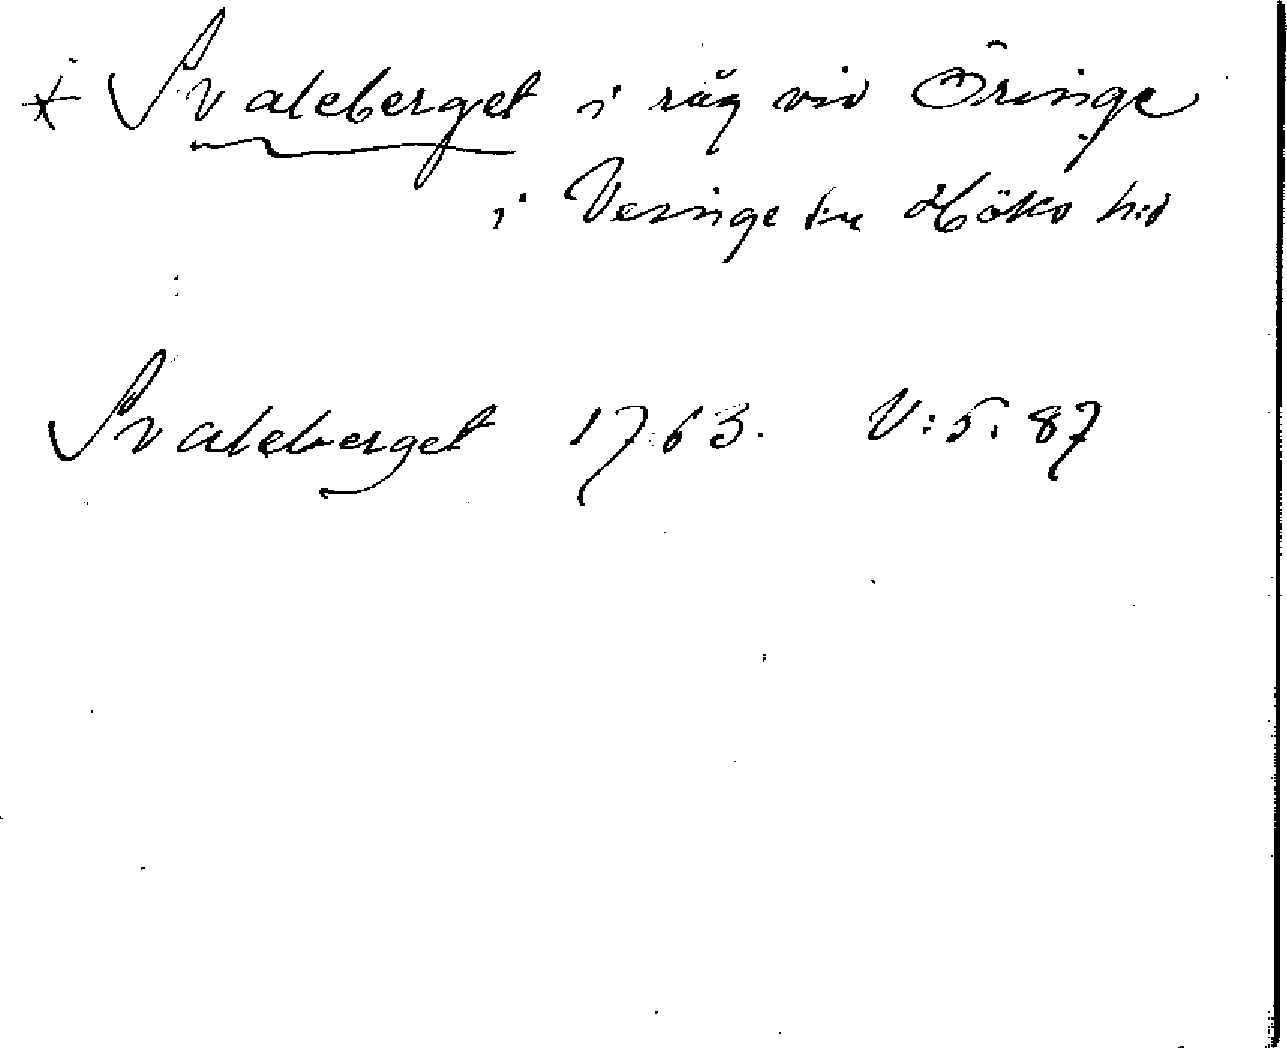 * Svaleberget i råg vid Öringe
i Veinge sn Höks hd
Svaleberget 1763. V:5. 87